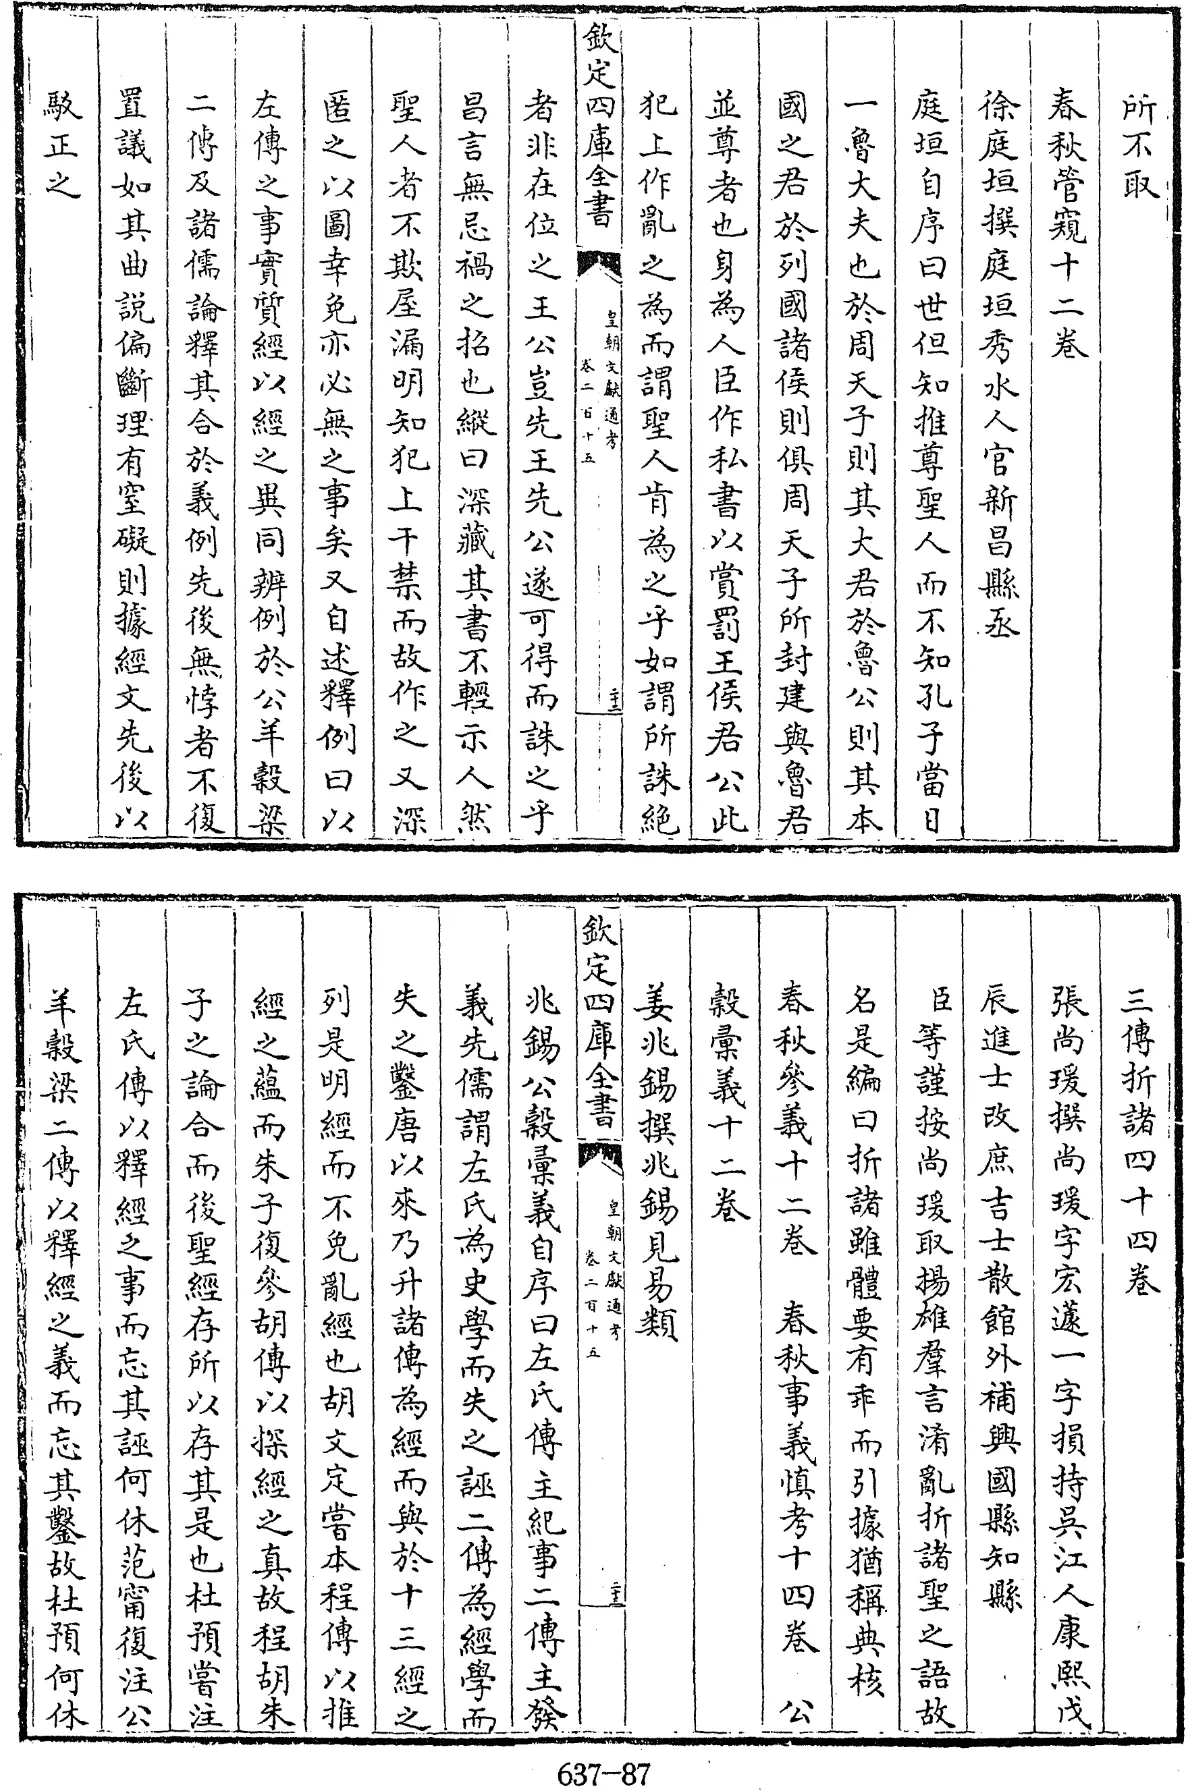 所不取
春秋管窺十二卷
徐庭垣撰庭垣秀水人官新昌縣丞
庭垣自序曰世但知推尊聖人而不知孔子當日
一魯大夫也於周天子則其大君於魯公則其本
國之君於列國諸侯則俱周天子所封建與魯君
並尊者也身為人臣作私書以賞罰王侯君公此
犯上作亂之為而謂聖人肯為之乎如謂所誅絕
欽定四庫全書
皇朝文獻通考
卷二百十五
二十三
者非在位之王公豈先王先公遂可得而誅之乎
昌言無忌禍之招也縱曰深藏其書不輕示人然
聖人者不欺屋漏明知犯上干禁而故作之又深
匿之以圖幸免亦必無之事矣又自述釋例曰以
左傳之事實質經以經之異同辨例於公羊穀梁
二傳及諸儒論釋其合於義例先後無悖者不復
置議如其曲說偏斷理有窒礙則據經文先後以
駁正之
三傳折諸四十四卷
張尚瑗撰尚瑗字宏蘧一字損持吳江人康熙戊
辰進士改庶吉士散館外補興國縣知縣
臣等謹按尚瑗取揚雄羣言淆亂折諸聖之語故
名是編曰折諸雖體要有乖而引據猶稱典核
春秋參義十二卷　春秋事義慎考十四卷　公
穀彙義十二卷
姜兆錫撰兆錫見易類
欽定四庫全書
皇朝文獻通考
卷二百十五
二十三
兆錫公穀彙義自序曰左氏傳主紀事二傳主發
義先儒謂左氏為史學而失之誣二傳為經學而
失之鑿唐以來乃升諸傳為經而與於十三經之
列是明經而不免亂經也胡文定嘗本程傳以推
經之蘊而朱子復參胡傳以探經之真故程胡朱
子之論合而後聖經存所以存其是也杜預嘗注
左氏傳以釋經之事而忘其誣何休范甯復注公
羊穀梁二傳以釋經之義而忘其鑿故杜預何休
637-87